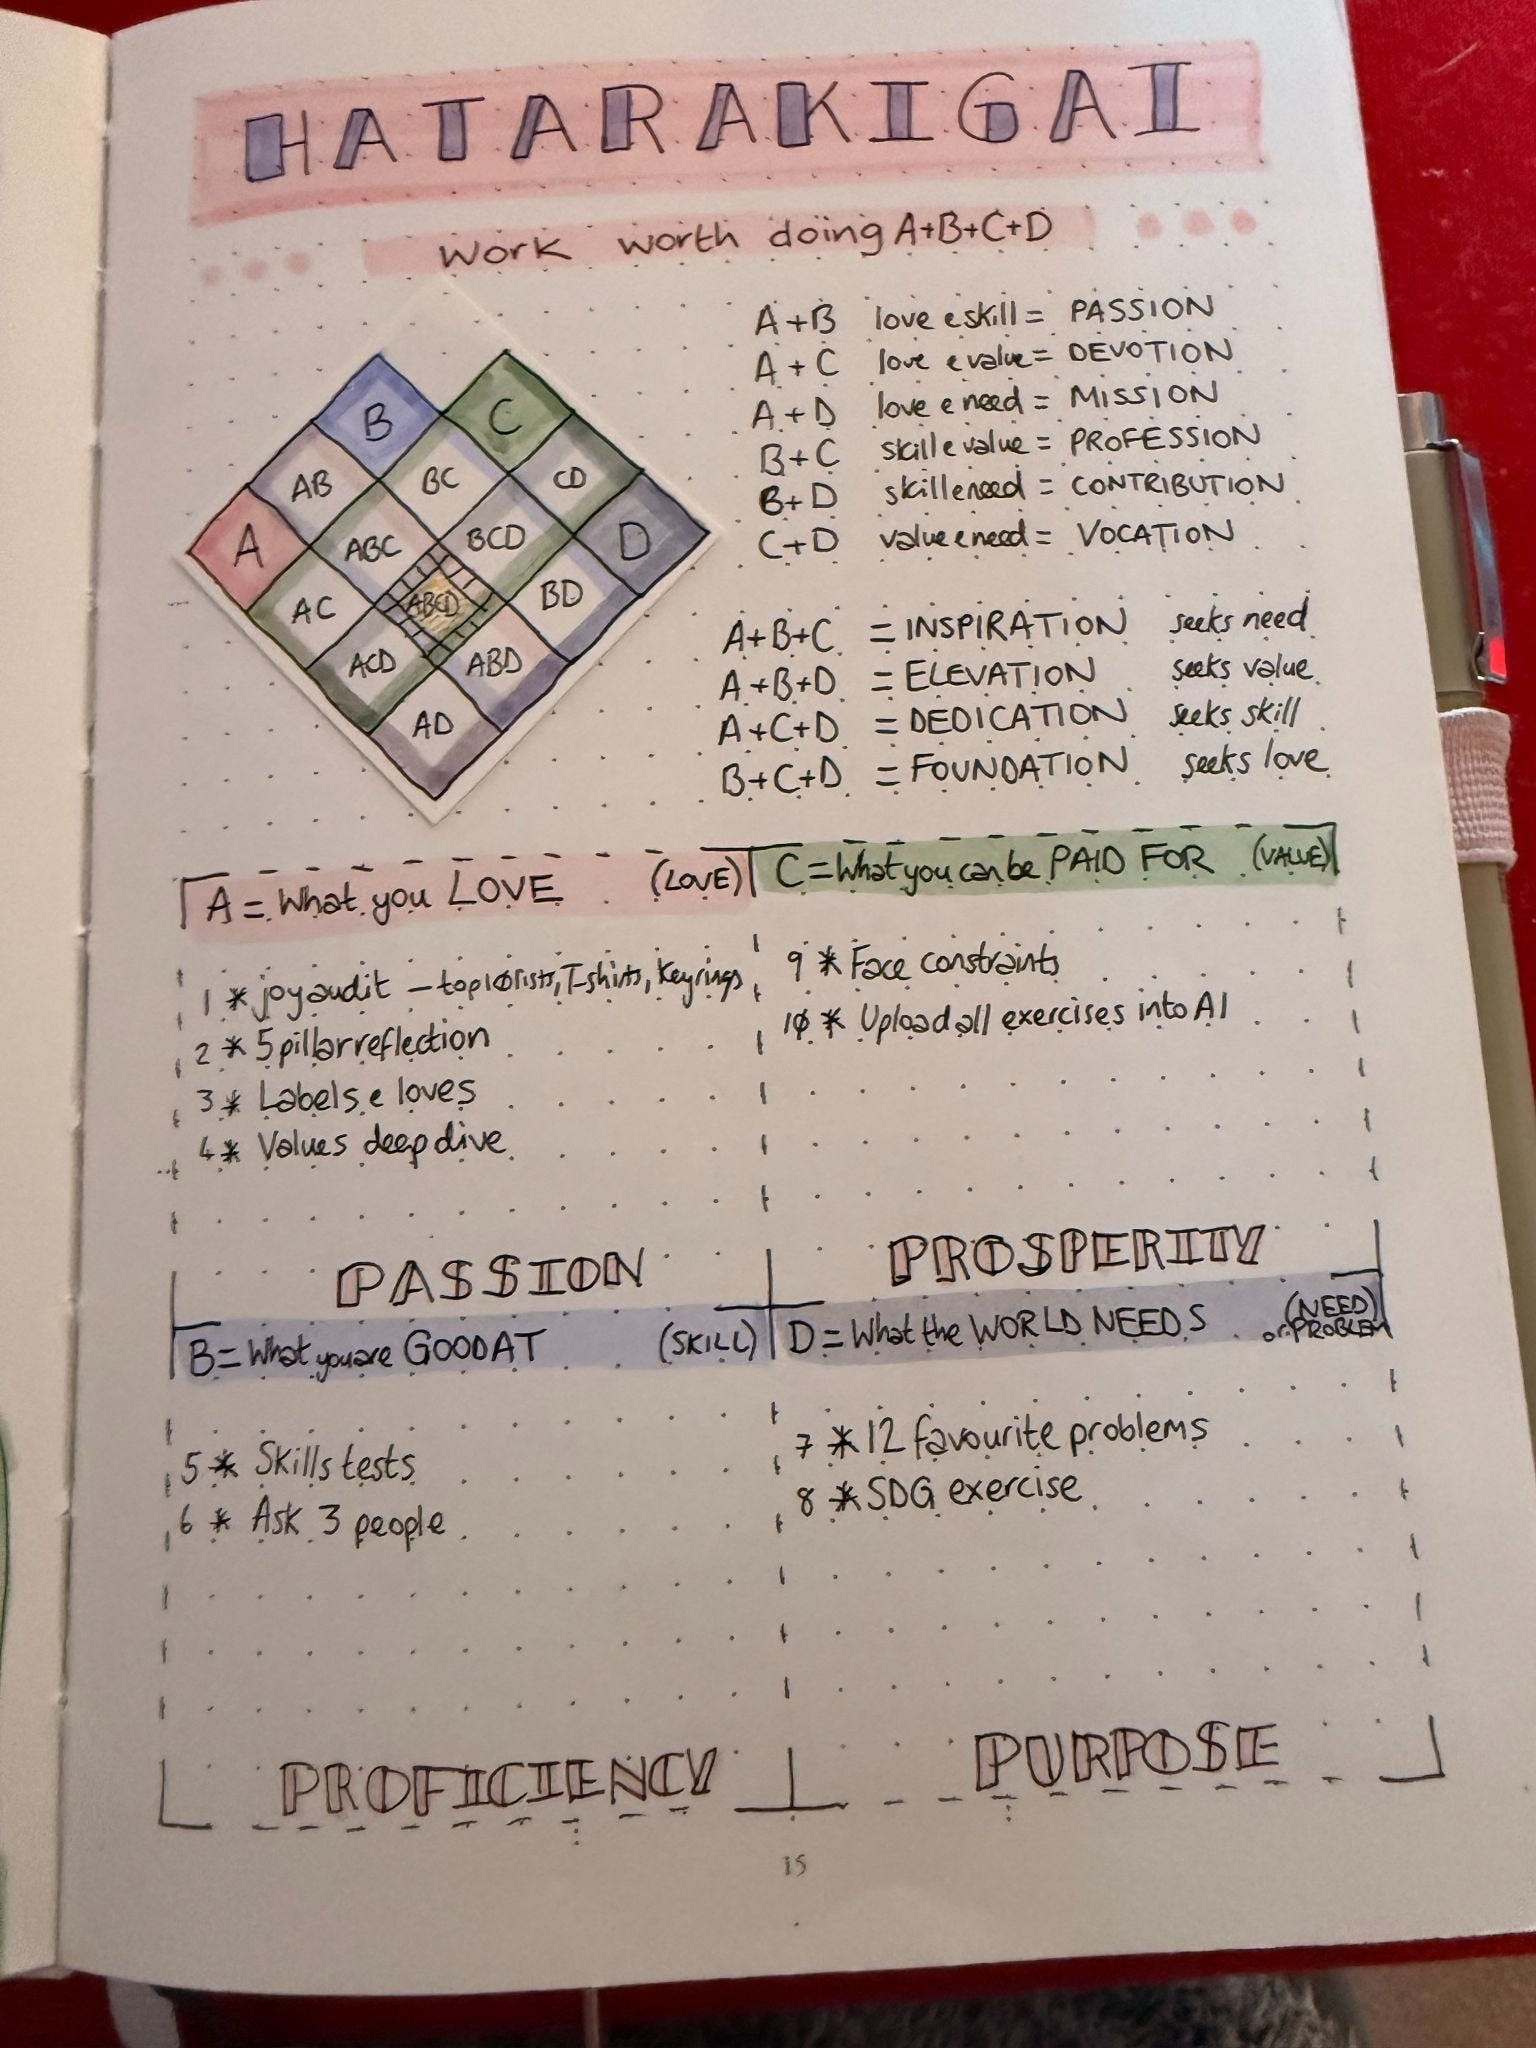 HATARAKIGAI
Work worth doing A+B+C+D
B
C
AB
BC
CD
A
ABC
BCD
D
AC
ABCD
BD
ACD
ABD
AD
A+B love e skill = PASSION
A+C love e value = DEVOTION
A+D love e need = MISSION
B+C skill e value = PROFESSION
B+D skill e need = CONTRIBUTION
C+D value e need = VOCATION
A+B+C = INSPIRATION seeks need
A+B+D = ELEVATION seeks value
A+C+D = DEDICATION seeks skill
B+C+D = FOUNDATION seeks love
A = What you LOVE (LOVE)
1 * joy audit - top 10 lists, T-shirts, Keyrings
2 * 5 pillar reflection
3 * Labels e loves
4 * Values deep dive
PASSION
C = What you can be PAID FOR (VALUE)
9 * Face constraints
10 * Upload all exercises into AI
PROSPERITY
B = What you are GOOD AT (SKILL)
5 * Skills tests
6 * Ask 3 people
PROFICIENCY
D = What the WORLD NEEDS (NEED)
or PROBLEM
7 * 12 favourite problems
8 * SDG exercise
PURPOSE
15